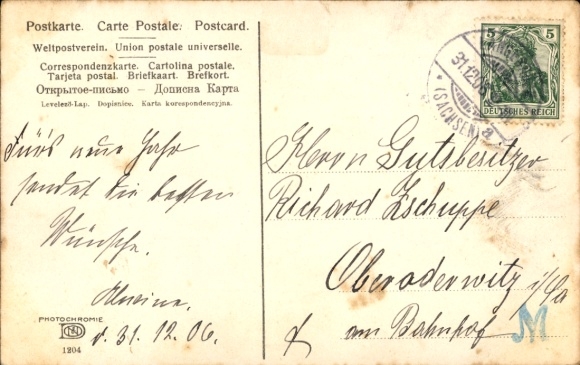 Postkarte. Carte Postale. Postcard.
Weltpostverein. Union postale universelle.
Correspondenzkarte. Cartolina postale.
Tarjeta postal. Briefkaart. Brefkort.
Открытое-письмо — Дописна Карта
Levelező-Lap. Dopisnice. Karta korespondencyjna.
Fürs neue Jahr
sendet die besten
Wünsche.
Alwine.
d. 31. 12. 06.
PHOTOCHROMIE
1204
5 5
DEUTSCHES REICH
31.12.06
(SACHSEN)
a
Herrn Gutsbesitzer
Richard Zschuppe
Oberoderwitz i/Sa
am Bahnhof
M